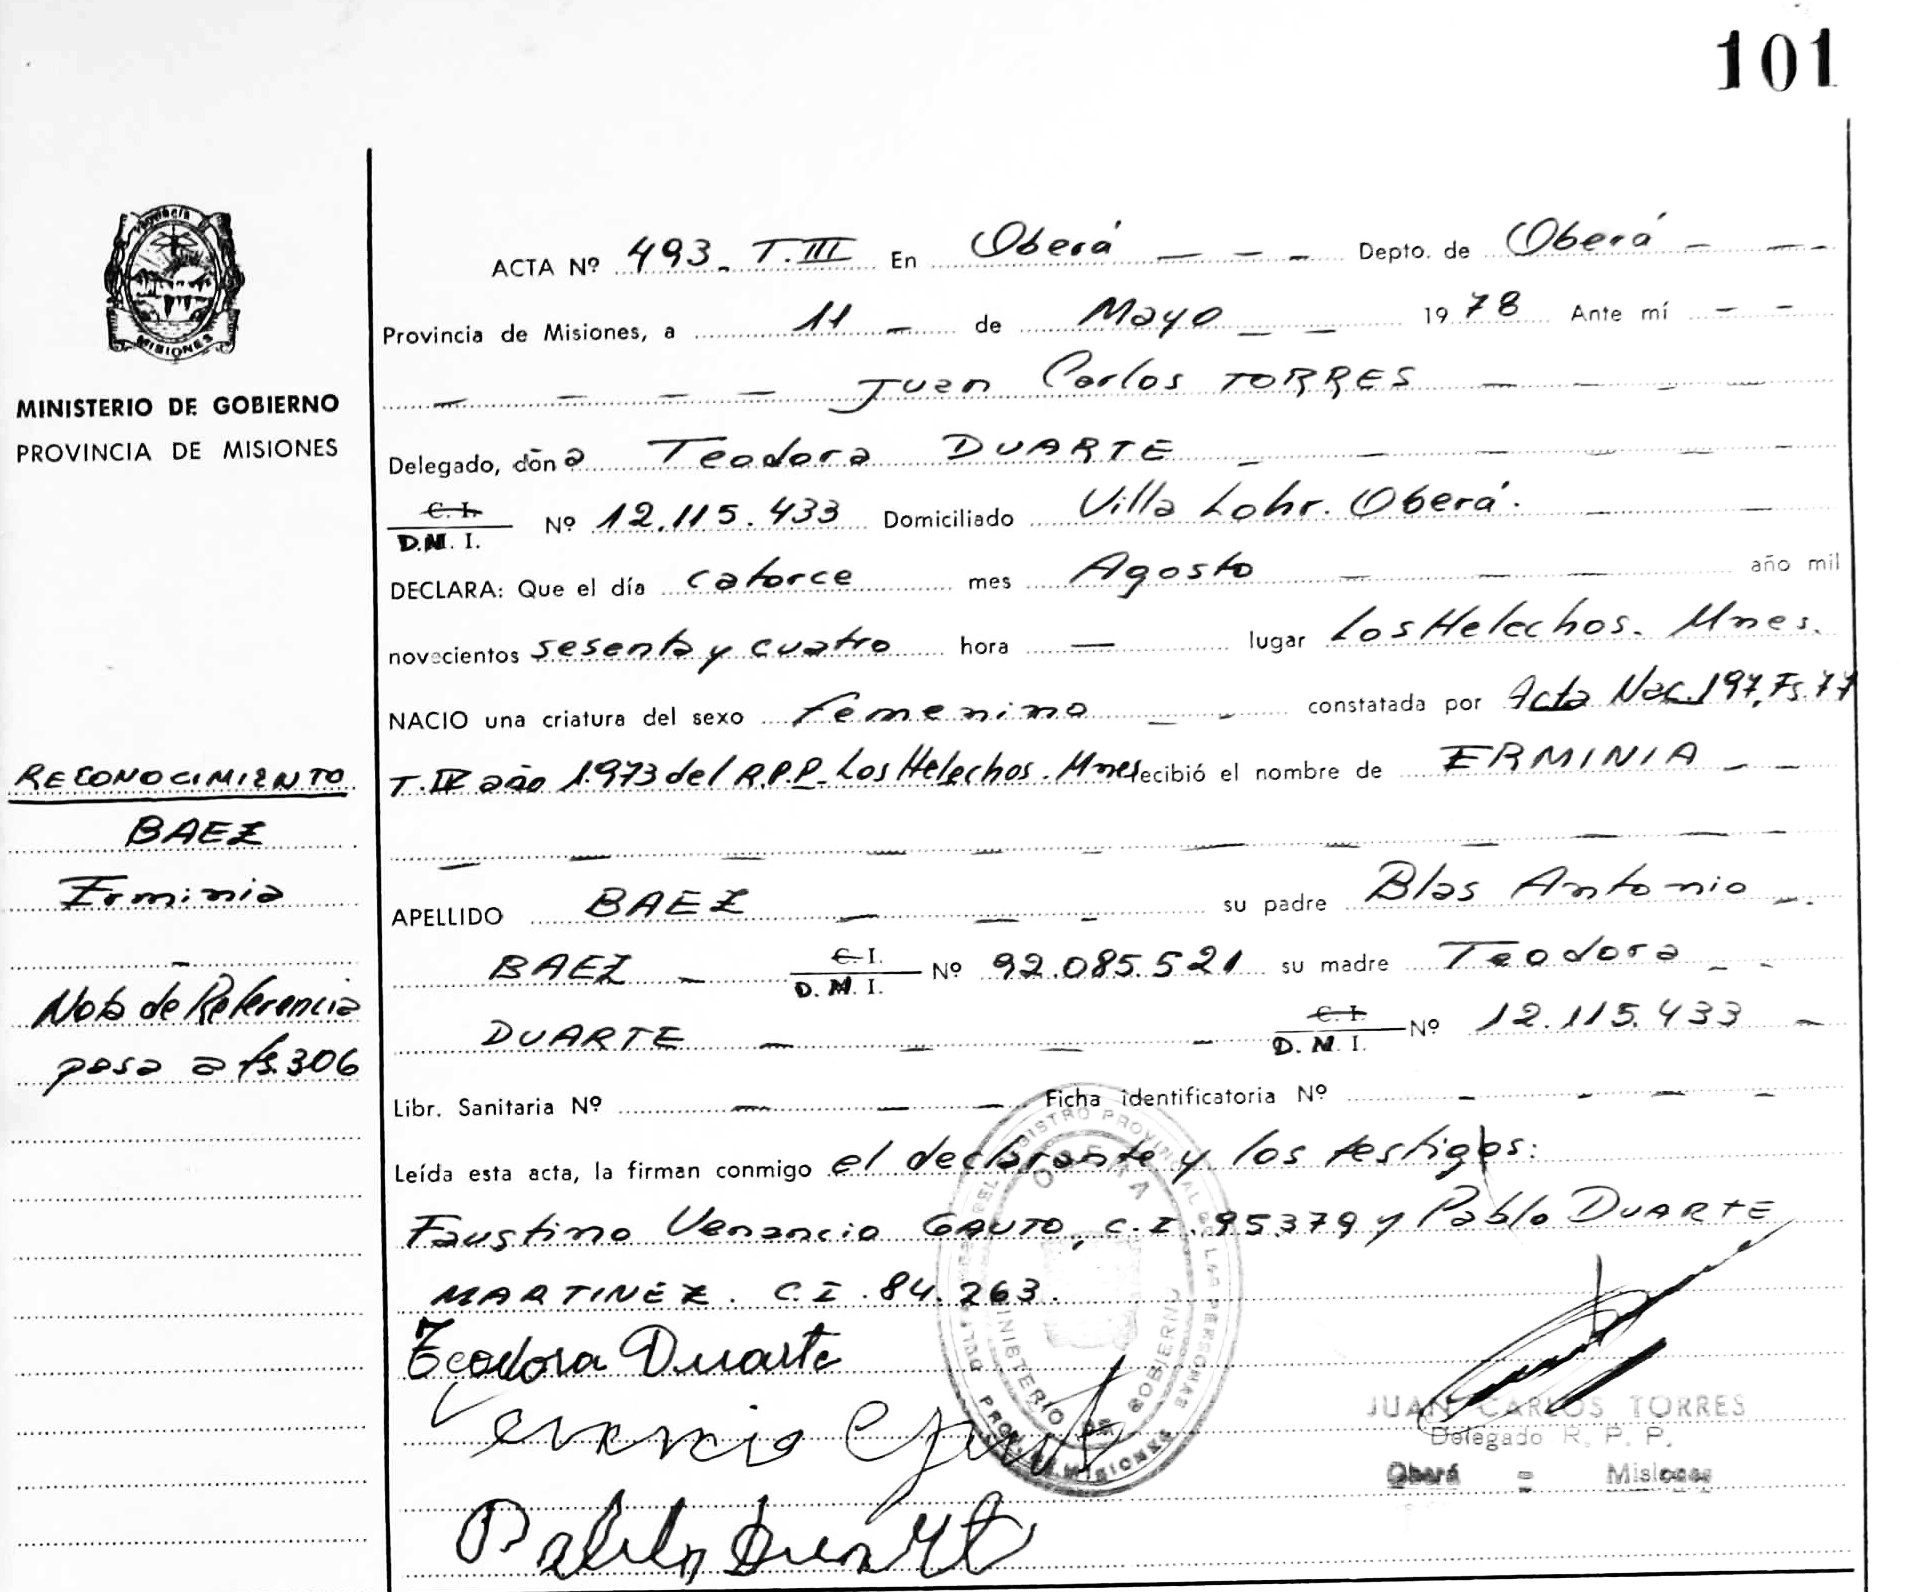 101
Provincia
MISIONES
MINISTERIO DE GOBIERNO
PROVINCIA DE MISIONES
ACTA Nº 493. T.III En Oberá Depto. de Oberá
Provincia de Misiones, a 11 de Mayo 1978 Ante mí
Juan Carlos TORRES
Delegado, dona Teodora DUARTE
C. I.
D.M. I. Nº 12.115.433 Domiciliado Villa Lohr. Oberá.
DECLARA: Que el día catorce mes Agosto año mil
novecientos sesenta y cuatro hora — lugar Los Helechos. Mnes.
NACIO una criatura del sexo femenino constatada por Acta Nac. 197, Fs. 77
T. IV año 1.973 del R.P.P. Los Helechos. Mnes ecibió el nombre de ERMINIA
RECONOCIMIENTO
BAEZ
Erminia
Nota de Referencia
pasa a fs. 306
APELLIDO BAEZ su padre Blas Antonio
BAEZ C. I. D. M. I. Nº 92.085.521 su madre Teodora
DUARTE C. I. D. M. I. Nº 12.115.433
Libr. Sanitaria Nº Ficha identificatoria Nº
Leída esta acta, la firman conmigo el declarante y los testigos:
Faustino Venancio GAUTO, C.I. 95.379 y Pablo DUARTE
MARTINEZ. C.I. 84.263.
Teodora Duarte
Venancio Gauto
Pablo Duarte
REGISTRO PROVINCIAL DE LAS PERSONAS
OBERA
MINISTERIO DE GOBIERNO
PROV. MISIONES
JUAN CARLOS TORRES
Delegado R. P. P.
Oberá - Misiones